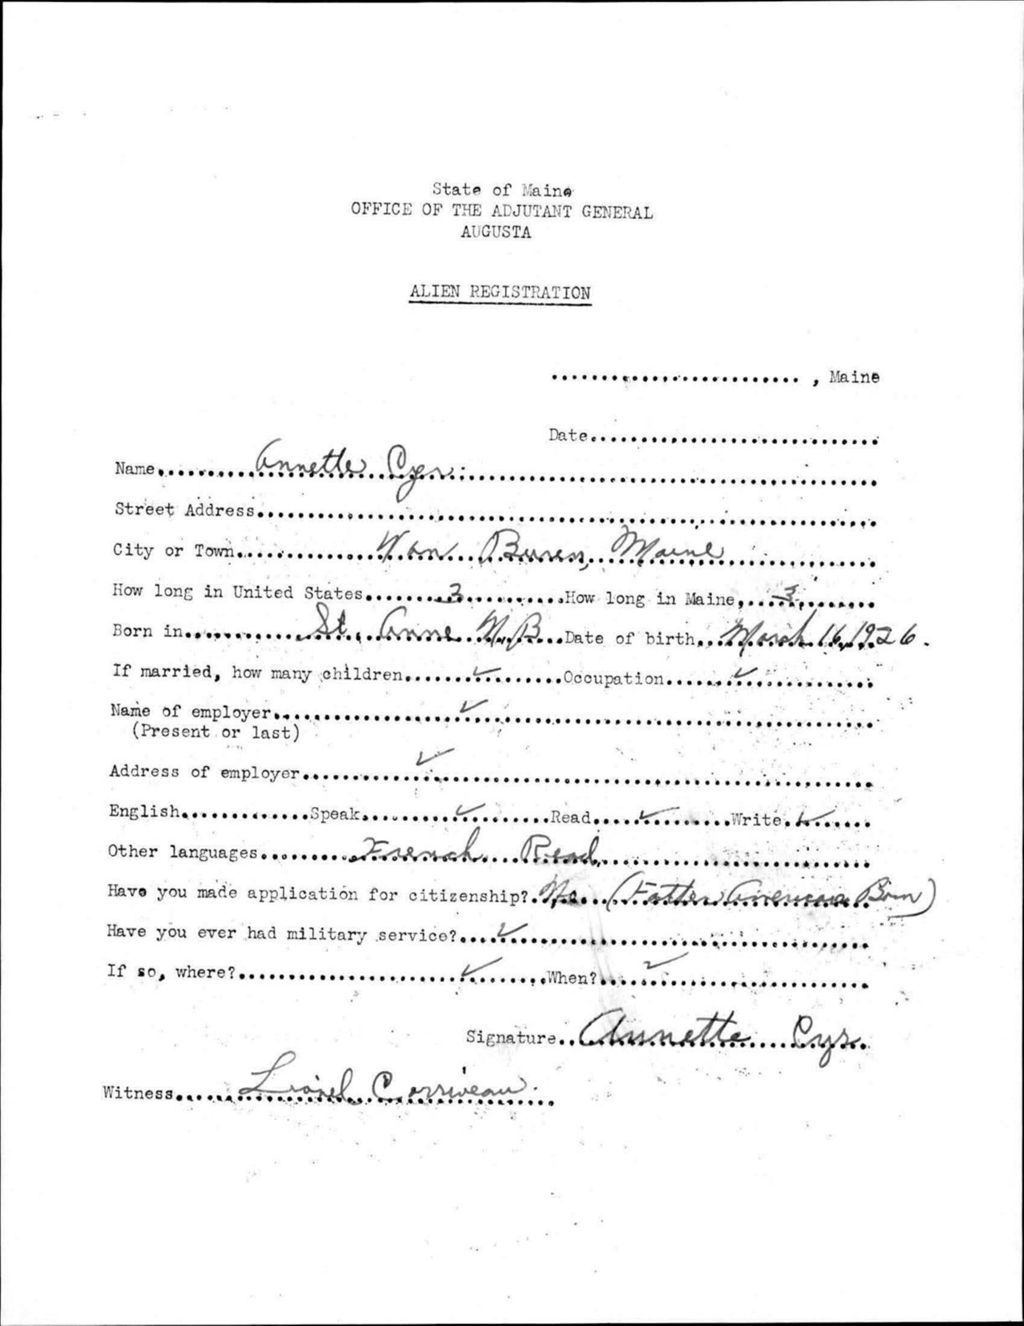 State of Maine
OFFICE OF THE ADJUTANT GENERAL
AUGUSTA
ALIEN REGISTRATION
........................ , Maine
Date............................
Name..........Annette Cyr..........
Street Address..........
City or Town..........Van Buren, Maine..........
How long in United States........3..........How long in Maine....3........
Born in..........St. Anne N.B....Date of birth..March 16, 1926.
If married, how many children......✓........Occupation......✓..........
Name of employer..........✓..........
(Present or last)
Address of employer..........✓..........
English............Speak.........✓........Read....✓........Write.✓......
Other languages.........French....Read..........
Have you made application for citizenship?.No...(Father American Born)
Have you ever had military service?...✓..........
If so, where?..........✓......When?....✓..........
Signature..Annette....Cyr..
Witness......Lionel Corriveau..